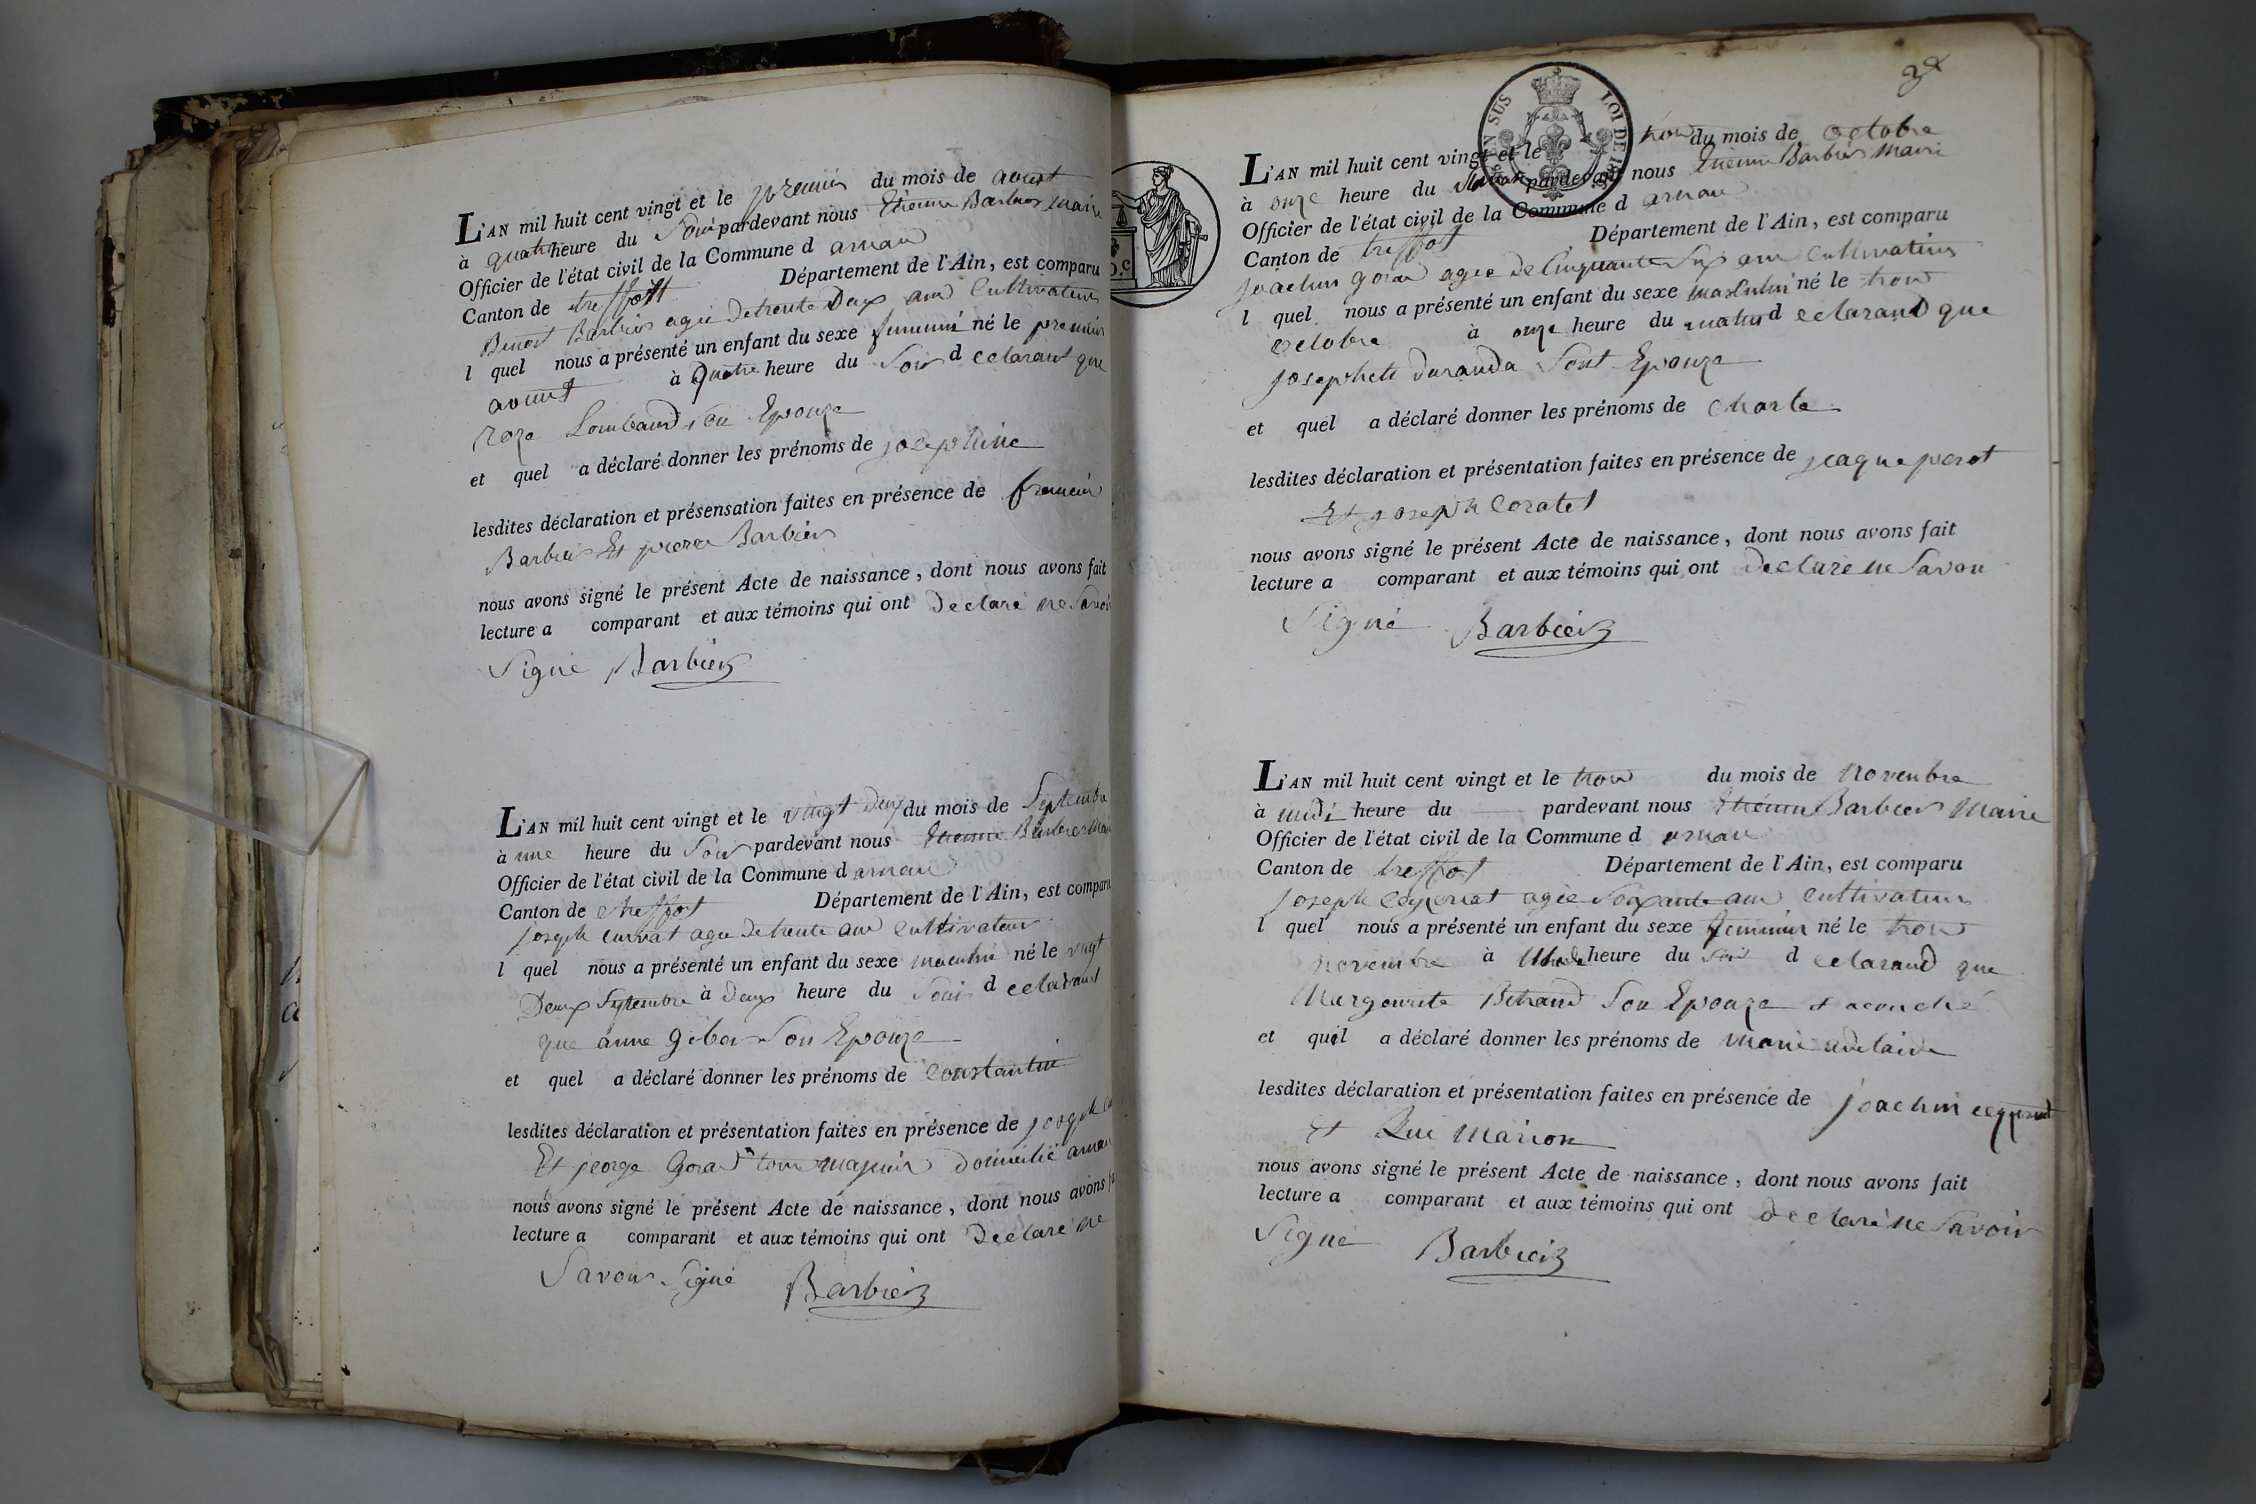 L'AN mil huit cent vingt et le premier du mois de aoust
à quatre heure du Soir pardevant nous Etienne Barbier Maire
Officier de l'état civil de la Commune d arnan
Canton de treffort Département de l'Ain, est comparu
Benoit Barbier agee de trente Deux ans Cultivateur
l quel nous a présenté un enfant du sexe feminin né le premier
aoust à quatre heure du Soir d eclarant que
roze Lombard Son Epouze
et quel a déclaré donner les prénoms de josephine
lesdites déclaration et présensation faites en présence de francois
Barbier Et piere Barbier
nous avons signé le présent Acte de naissance, dont nous avons fait
lecture a comparant et aux témoins qui ont Declaré ne Savoir
Signé Barbier
L'AN mil huit cent vingt et le vingt deux du mois de Septembre
à une heure du Soir pardevant nous Etienne Barbier Mai
Officier de l'état civil de la Commune d arnan
Canton de treffort Département de l'Ain, est comparu
joseph curvat agee de trente ans Cultivateur
l quel nous a présenté un enfant du sexe masculin né le vingt
Deux Septembre à deux heure du Soir d eclarant
que anne Son Epouze
et quel a déclaré donner les prénoms de Constantin
lesdites déclaration et présentation faites en présence de joseph
Et jeorge Goran tous majeur domicilié arnan
nous avons signé le présent Acte de naissance, dont nous avons
lecture a comparant et aux témoins qui ont Declaré ne
Savoir Signé Barbier
EN SUS LOI DE
L'AN mil huit cent vingt et le trois du mois de octobre
à onze heure du Matin pardevant nous Etienne Barbier Maire
Officier de l'état civil de la Commune d arnan
Canton de treffort Département de l'Ain, est comparu
joachin goran agee de Cinquante Six ans Cultivateur
l quel nous a présenté un enfant du sexe masculin né le trois
octobre à onze heure du matin d eclarant que
josephete duranda Sont Epouze
et quel a déclaré donner les prénoms de Charle
lesdites déclaration et présentation faites en présence de jeaque perot
Et joseph Coratet
nous avons signé le présent Acte de naissance, dont nous avons fait
lecture a comparant et aux témoins qui ont declaré ne Savoir
Signé Barbier
L'AN mil huit cent vingt et le trois du mois de novembre
à midi heure du pardevant nous Etienne Barbier Maire
Officier de l'état civil de la Commune d arnan
Canton de treffort Département de l'Ain, est comparu
joseph agée Soixante ans Cultivateur
l quel nous a présenté un enfant du sexe feminin né le trois
novembre à heure du Soir d eclarand que
Margourite Son Epouze acouché
et quil a déclaré donner les prénoms de marie adelaide
lesdites déclaration et présentation faites en présence de joachin
Et Marion
nous avons signé le présent Acte de naissance, dont nous avons fait
lecture a comparant et aux témoins qui ont declaré ne Savoir
Signé Barbier